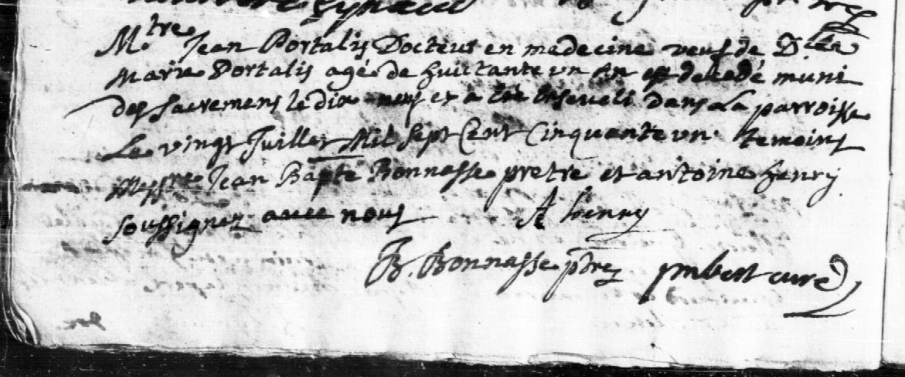 Mtre Jean Portalis Docteur en medecine veuf de Dlle
Marie Portalis agé de huittante un an est decedé muni
des sacremens le dix neuf et a été enseveli dans la parroisse
Le vingt Juillet Mil Sept Cent Cinquante un. temoins
Messre Jean Bapte Bonnasse pretre et antoine henry
soussignez avec nous A henry
JB. Bonnasse ptre imbert curé